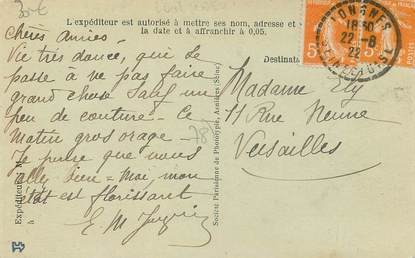 30€
L'expéditeur est autorisé à mettre ses nom, adresse et
la date et à affranchir à 0,05.
Chères Amies
Vie très douce, qui se
passe à ne pas faire
grand chose sauf un
peu de couture – Ce
Matin gros orage –
Je pense que vous
allez bien – Moi, mon
état est florissant
E. M.
Expéditeur: M
à
Société Parisienne de Phonotypie, Asnières (Seine)
Destinat
Madame Ely
11 Rue Neuve
Versailles
22-8
22
5